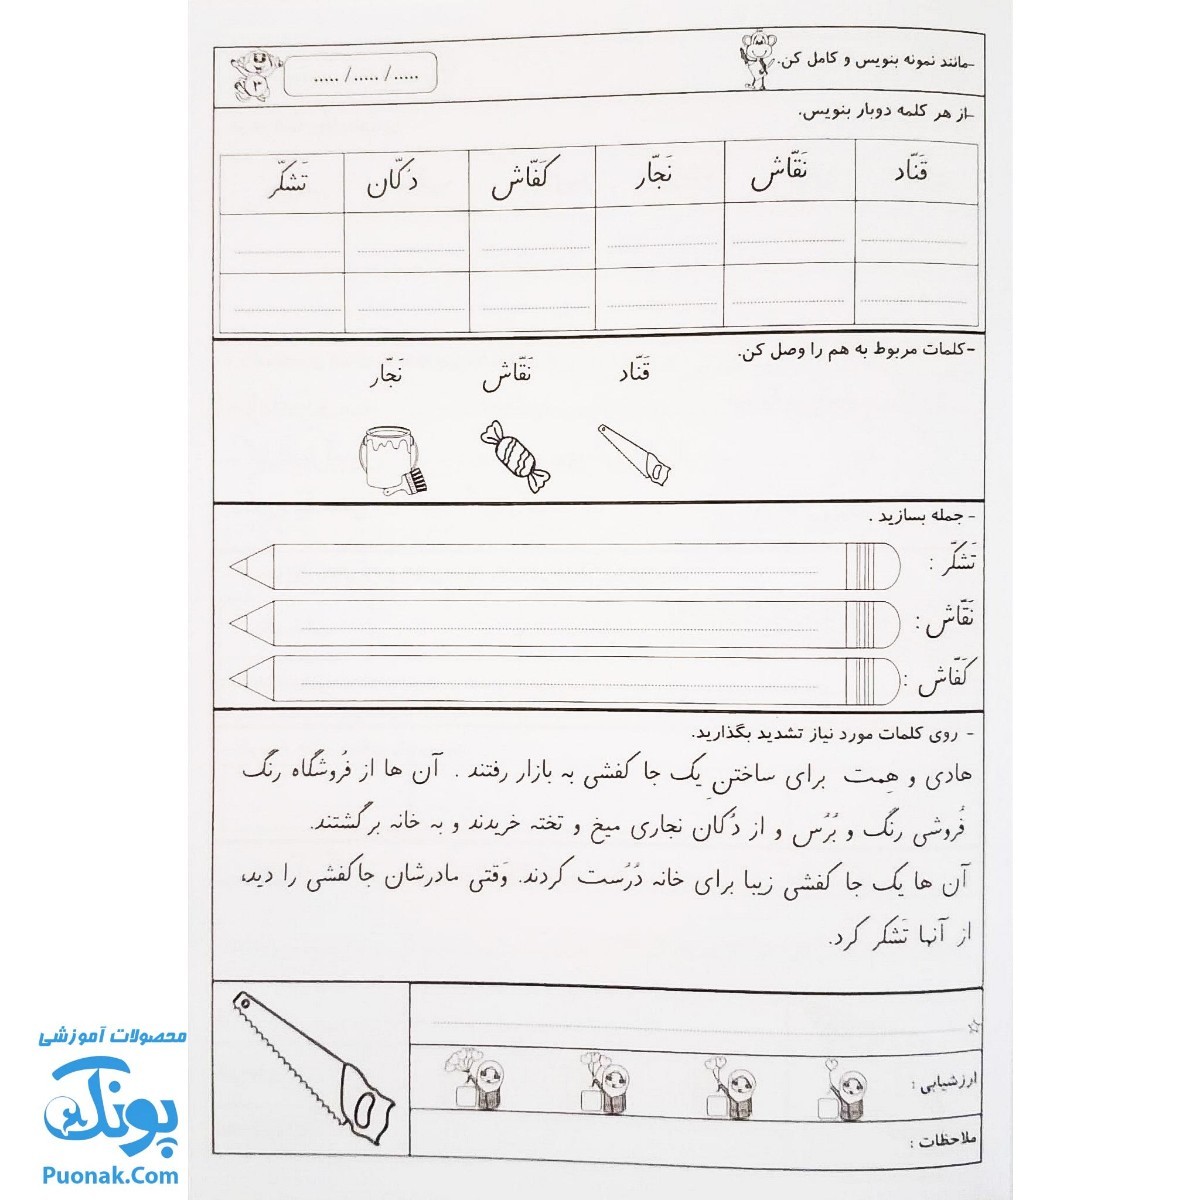 -مانند نمونه بنویس و کامل کن.
..... / ..... / .....
۳
-از هر کلمه دوبار بنویس.
قَنّاد نَقّاش نَجّار کَفّاش دُکّان تَشَکّر
-کلمات مربوط به هم را وصل کن.
قَنّاد نَقّاش نَجّار
- جمله بسازید .
تَشَکّر :
نَقّاش :
کَفّاش :
- روی کلمات مورد نیاز تشدید بگذارید.
هادی و هِمت برای ساختنِ یک جا کفشی به بازار رفتند . آن ها از فُروشگاه رنگ
فُروشی رنگ و بُرُس و از دُکان نجاری میخ و تخته خریدند و به خانه برگشتند.
آن ها یک جا کفشی زیبا برای خانه دُرُست کردند. وَقتی مادرشان جاکفشی را دید،
از آنها تَشکر کرد.
ارزشیابی :
ملاحظات :
محصولات آموزشی
پونک
Puonak.Com